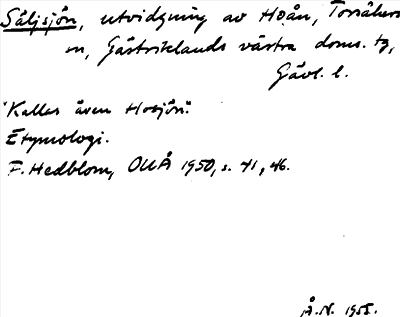 Säljsjön, utvidgning av Hoån, Torsåkers
sn, Gästriklands västra doms. tg,
Gävl. l.
"Kallas även Hosjön".
Etymologi.
F. Hedblom, OUÅ 1950, s. 41, 46.
Å.N. 1955.